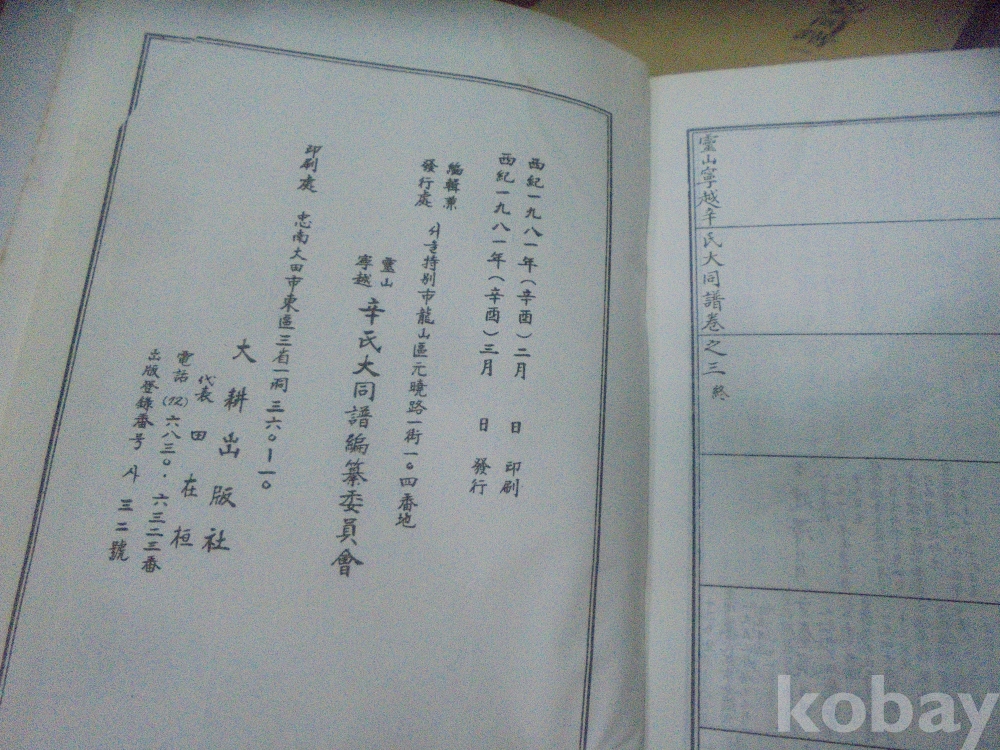 靈山寧越辛氏大同譜卷之三 終
西紀一九八一年(辛酉)二月 日 印刷
西紀一九八一年(辛酉)三月 日 發行
編輯兼
發行處
서울特別市龍山區元曉路一街一〇四番地
靈山
寧越
辛氏大同譜編纂委員會
印刷處 忠南大田市東區三省一洞三六〇ー一〇
大耕出版社
代表 田在桓
電話(42)六八三〇・六三二三番
出版登錄番号 사 三二號
kobay